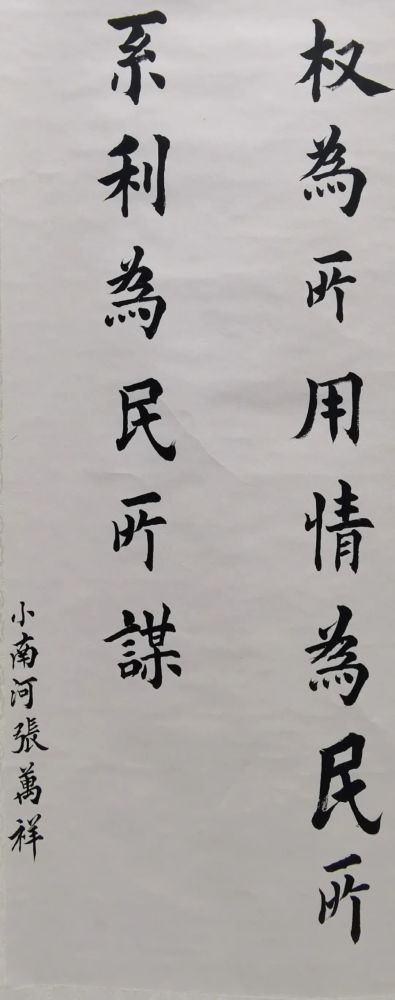 权為所用情為民所
系利為民所謀
小南河張萬祥